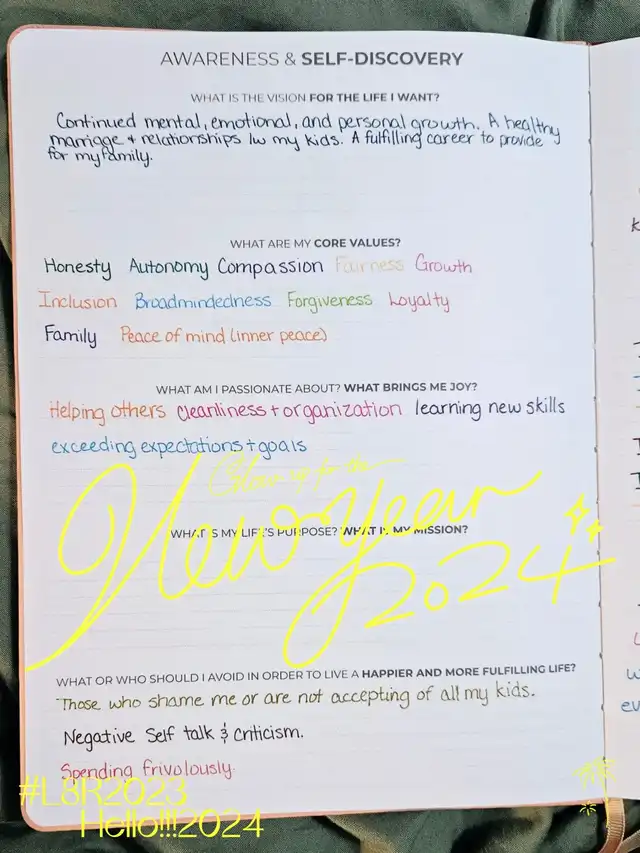 AWARENESS & SELF-DISCOVERY
WHAT IS THE VISION FOR THE LIFE I WANT?
Continued mental, emotional, and personal growth. A healthy
marriage + relationships /w my kids. A fulfilling career to provide
for my family.
WHAT ARE MY CORE VALUES?
Honesty Autonomy Compassion Fairness Growth
Inclusion Broadmindedness Forgiveness Loyalty
Family Peace of mind (inner peace)
WHAT AM I PASSIONATE ABOUT? WHAT BRINGS ME JOY?
Helping others cleanliness + organization learning new skills
exceeding expectations + goals
New year
2024
WHAT IS MY LIFE'S PURPOSE? WHAT IS MY MISSION?
WHAT OR WHO SHOULD I AVOID IN ORDER TO LIVE A HAPPIER AND MORE FULFILLING LIFE?
Those who shame me or are not accepting of all my kids.
Negative Self talk & Criticism.
Spending frivolously.
#L8R2023
Hello!!!2024